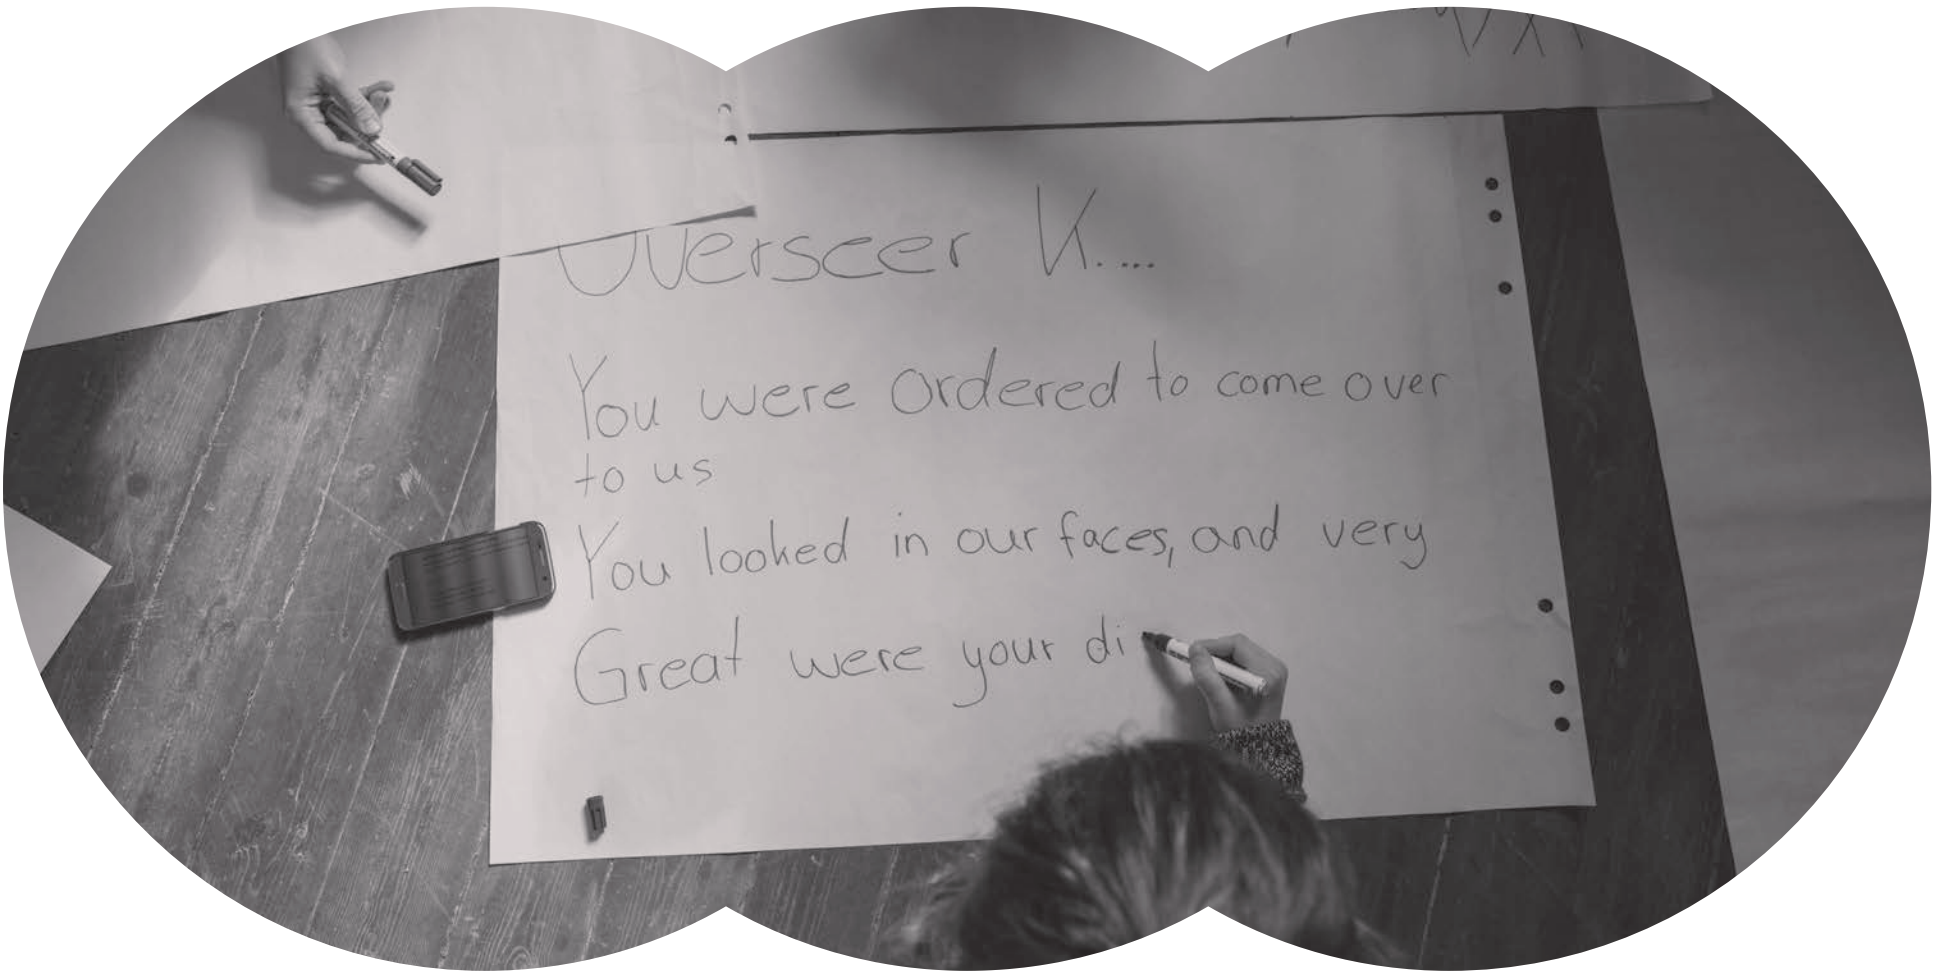 Overseer K....
You were ordered to come over
to us
You looked in our faces, and very
Great were your di